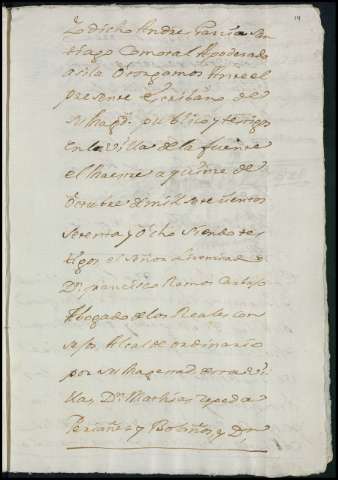 14
Yo dicho Andres Garcia San
tiago Como tal Apoderado
asi lo Otorgamos Ante el
presente Escribano de
su Magd. publico y testigos
en la Villa de la fuente
el Maestre a quinze de
Octubre de mil setecientos
setenta y Ocho siendo tes
tigos el señor Lizenciado
Dn. francisco Ramos Cardoso
Abogado de los Reales Con
sejos Alcalde ordinario
por su Magestad de esta de
Villa, Dn. Mathias zepeda
y Bolaños y Dn